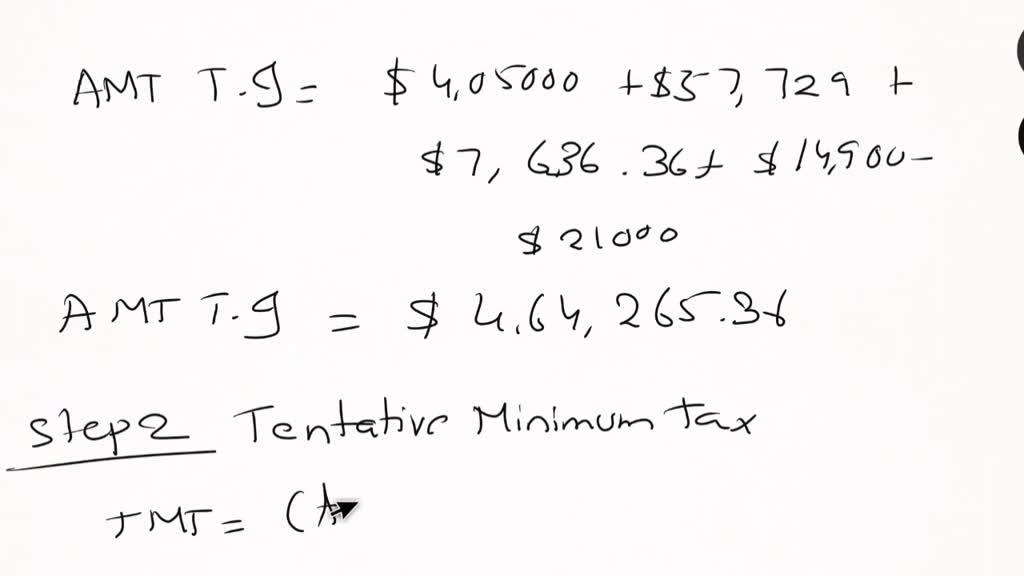 AMT T.g = $ 4,05000 + $57,729 +
$7,636.36 + $ 14,900 -
$ 21000
AMT T.g = $ 4,64,265.36
Step 2 Tentative Minimum Tax
TMT = (A